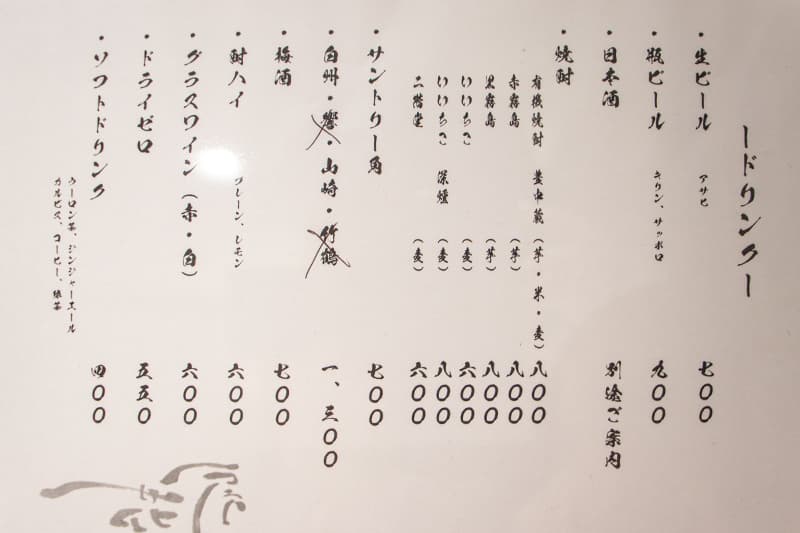 ードリンクー
・生ビール アサヒ 七〇〇
・瓶ビール キリン、サッポロ 九〇〇
・日本酒 別途ご案内
・焼酎
有機焼酎 豊中蔵（芋・米・麦） 八〇〇
赤霧島（芋） 八〇〇
黒霧島（芋） 八〇〇
いいちこ（麦） 六〇〇
いいちこ 深爐（麦） 八〇〇
二階堂（麦） 六〇〇
・サントリー角 七〇〇
・白州・響・山崎・竹鶴 一、三〇〇
・梅酒 七〇〇
・酎ハイ プレーン、レモン 六〇〇
・グラスワイン（赤・白） 六〇〇
・ドライゼロ 五五〇
・ソフトドリンク 四〇〇
ウーロン茶、ジンジャーエール
カルピス、コーヒー、緑茶